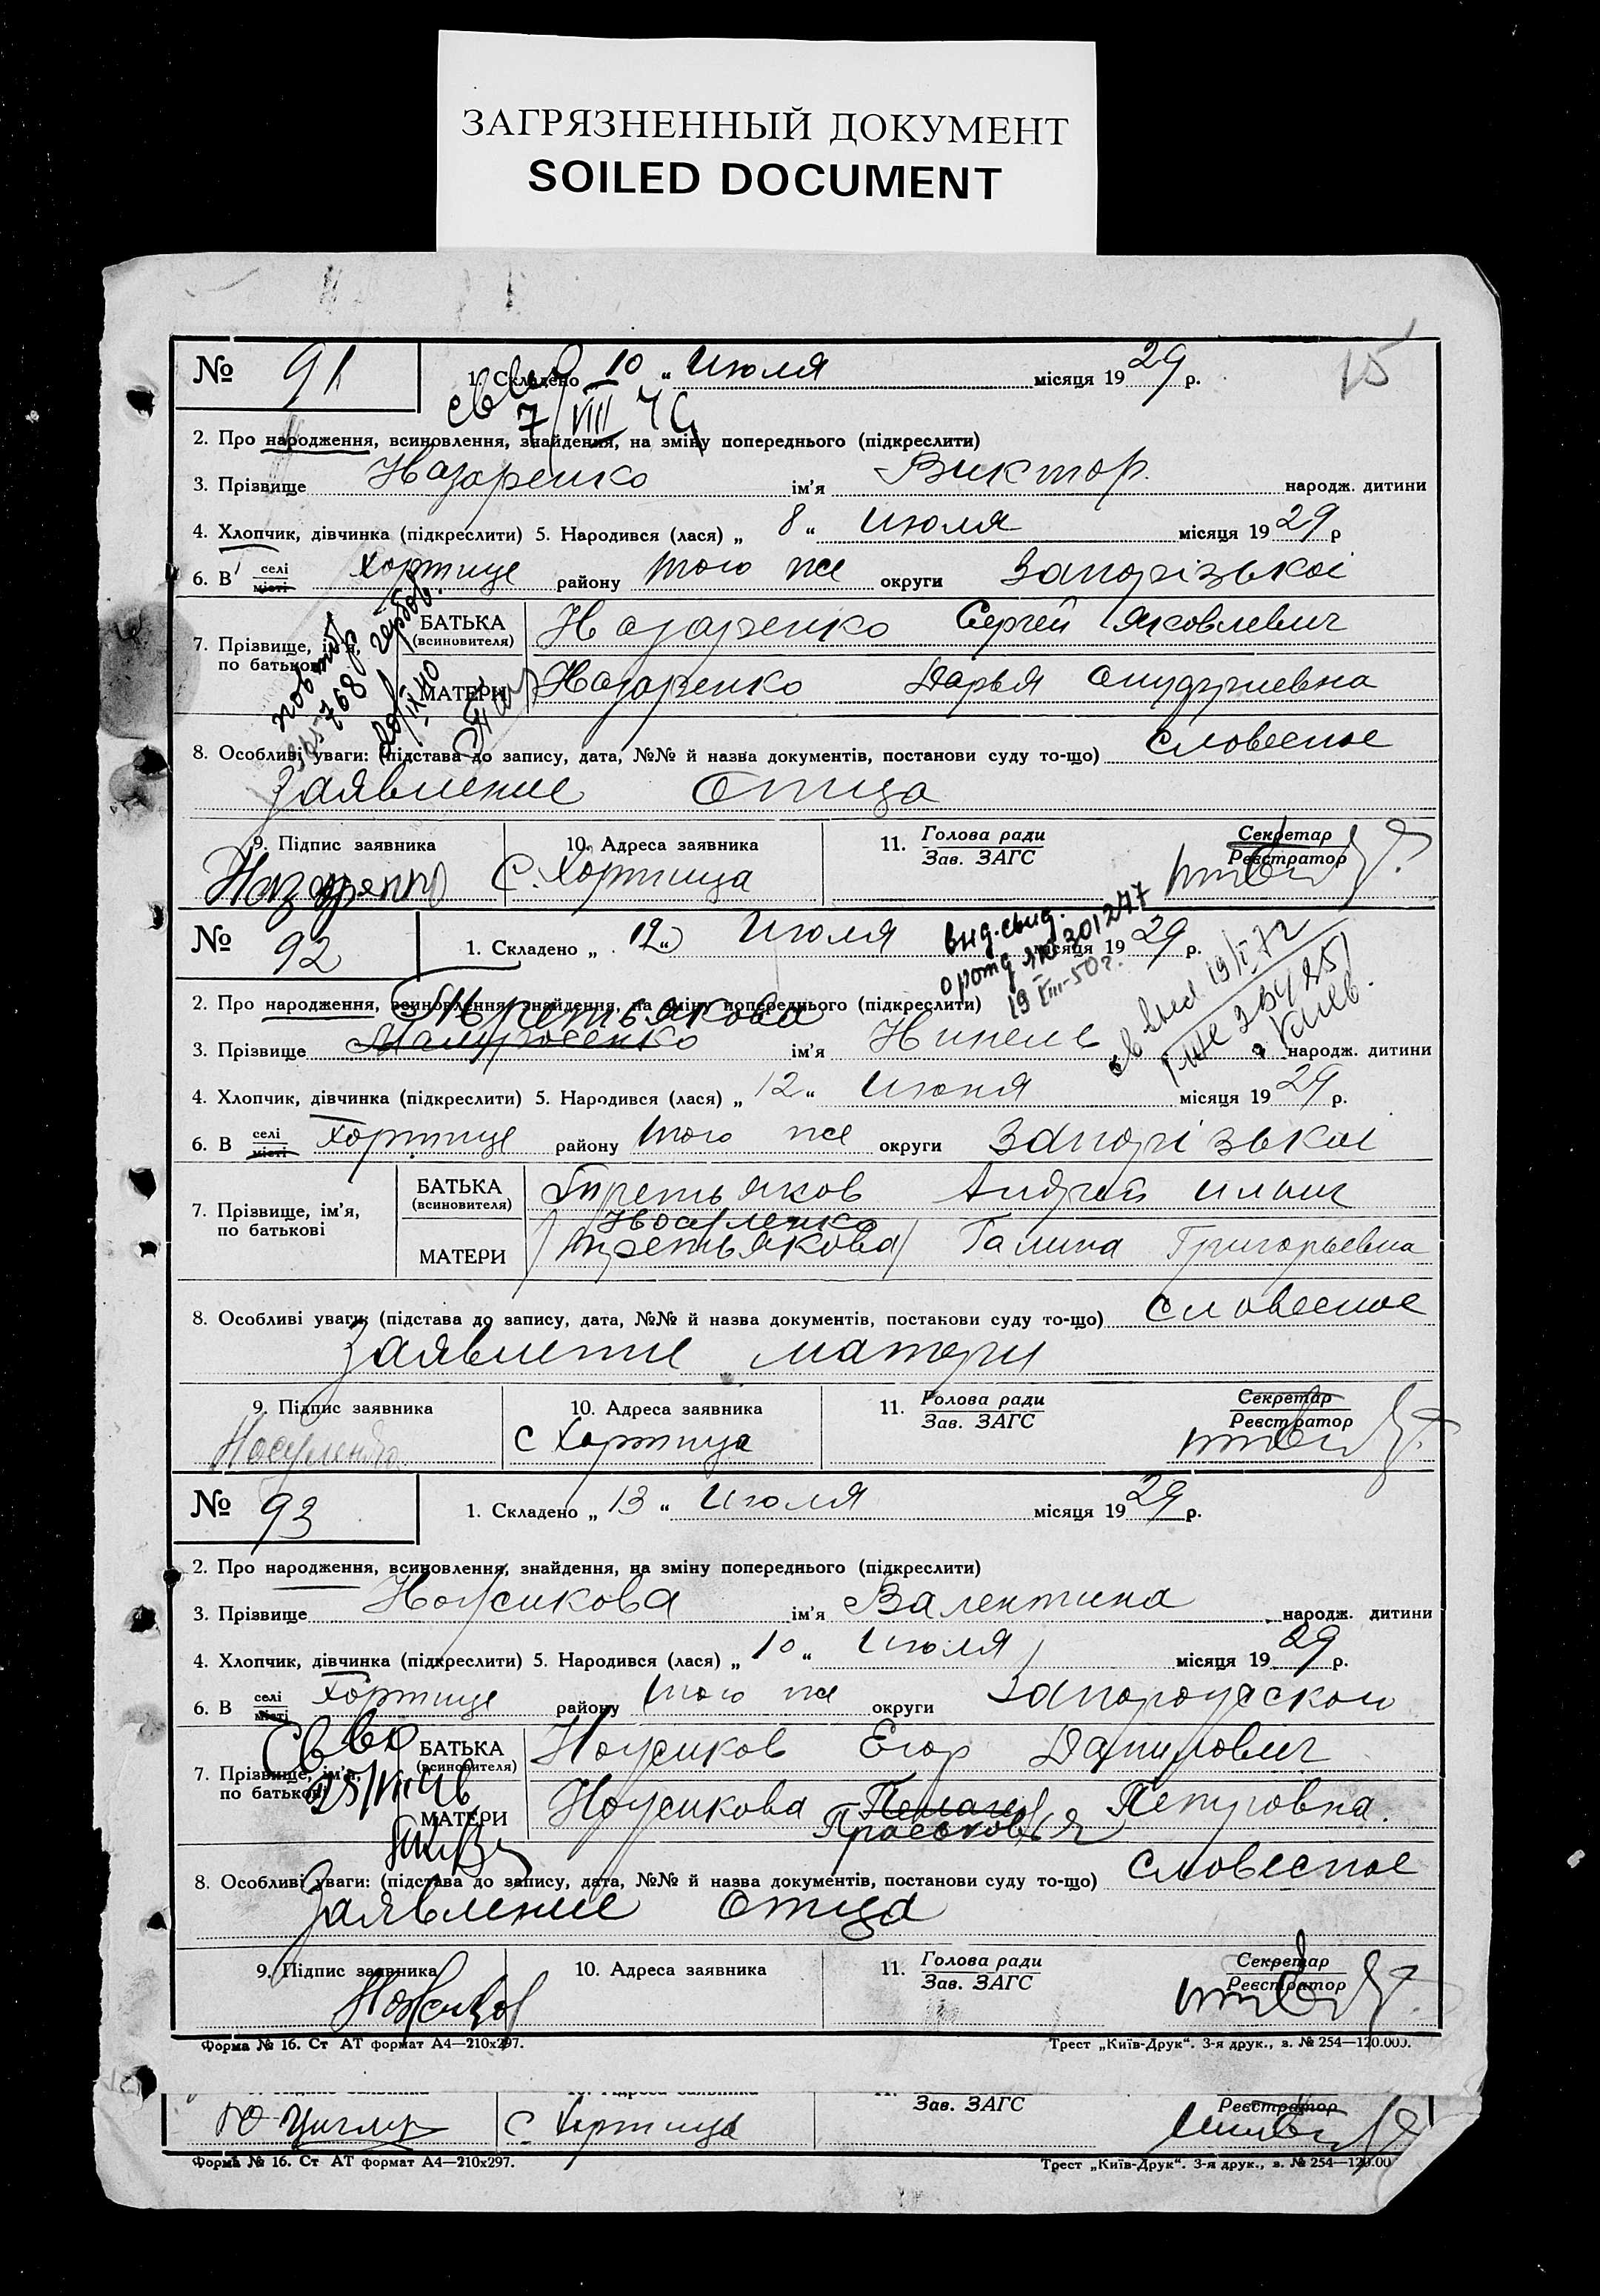 ЗАГРЯЗНЕННЫЙ ДОКУМЕНТ
SOILED DOCUMENT
15
№ 91
1. Складено 10 „ Июля місяця 1929 р.
7/VIII
2. Про народження, всиновлення, знайдення, на зміну попереднього (підкреслити)
3. Прізвище Назаренко ім'я Виктор народж. дитини
4. Хлопчик, дівчинка (підкреслити) 5. Народився (лася) „ 8 “ Июля місяця 1929 р
6. В селі місті Хортице району того же округи Запорізької
7. Прізвище, ім'я, по батькові
БАТЬКА (всиновителя) Назаренко Сергей Яковлевич
МАТЕРИ Назаренко Дарья
8. Особливі уваги: (підстава до запису, дата, №№ й назва документів, постанови суду то-що) словесное
заявление отца
9. Підпис заявника 10. Адреса заявника 11. Голова ради Зав. ЗАГС Секретар Реєстратор
Назаренко С. Хортица
№ 92
1. Складено „ 12 “ Июля місяця 1929 р.
выд. свид.
о рожд ЯЮ 301277
19 VIII-50 г.
св выд 19/I 72
г. Киев.
2. Про народження, всиновлення, знайдення, на зміну попереднього (підкреслити)
Третьякова
3. Прізвище ім'я Нинель народж. дитини
4. Хлопчик, дівчинка (підкреслити) 5. Народився (лася) „ 12 “ Июня місяця 1929 р.
6. В селі місті Хортице району того же округи Запорізької
7. Прізвище, ім'я, по батькові
БАТЬКА (всиновителя) Третьяков Андрей Ильич
МАТЕРИ /Третьякова/ Галина Григорьевна
8. Особливі уваги: (підстава до запису, дата, №№ й назва документів, постанови суду то-що) словесное
заявление матери
9. Підпис заявника 10. Адреса заявника 11. Голова ради Зав. ЗАГС Секретар Реєстратор
С Хортица
№ 93
1. Складено „ 13 “ Июля місяця 1929 р.
2. Про народження, всиновлення, знайдення, на зміну попереднього (підкреслити)
3. Прізвище Ножикова ім'я Валентина народж. дитини
4. Хлопчик, дівчинка (підкреслити) 5. Народився (лася) „ 10 “ Июля місяця 1929 р.
6. В селі місті Хортице району того же округи Запорожской
7. Прізвище, ім'я, по батькові
БАТЬКА (всиновителя) Ножиков Егор Данилович
МАТЕРИ Ножикова Пелагея Петровна.
Прасковья
8. Особливі уваги: (підстава до запису, дата, №№ й назва документів, постанови суду то-що) словесное
заявление отца
9. Підпис заявника 10. Адреса заявника 11. Голова ради Зав. ЗАГС Секретар Реєстратор
Ножиков
Форма № 16. Ст АТ формат А4—210х297. Трест „Київ-Друк“. 3-я друк., з. № 254—120.000.
Зав. ЗАГС Реєстратор
Ю Циглер С Хортица
Форма № 16. Ст АТ формат А4—210х297. Трест „Київ-Друк“. 3-я друк., з. № 254—120.00